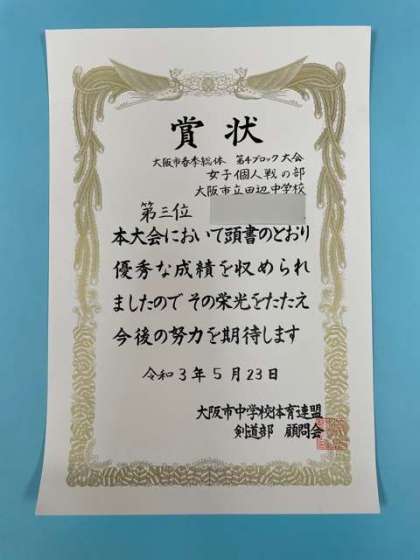 賞状
大阪市春季総体 第4ブロック大会
女子個人戦の部
大阪市立田辺中学校
第三位
本大会において頭書のとおり
優秀な成績を収められ
ましたので その栄光をたたえ
今後の努力を期待します
令和3年5月23日
大阪市中学校体育連盟
剣道部 顧問会